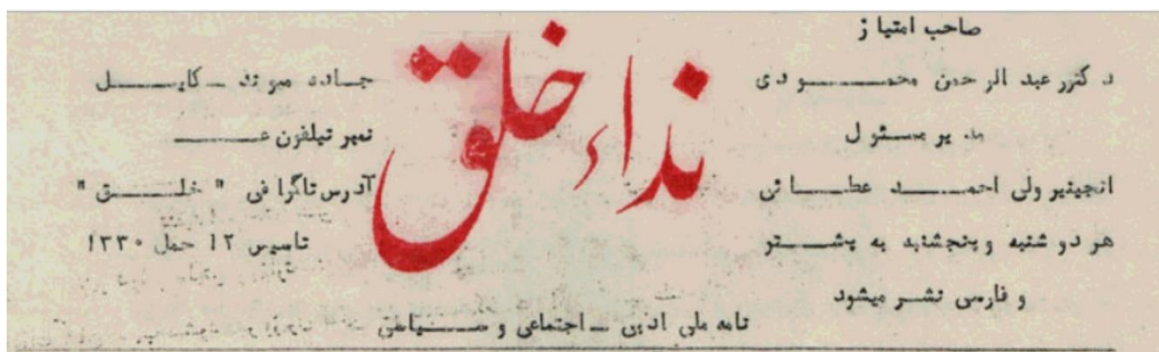 صاحب امتیاز
دکتور عبد الرحمن محمودی
مدیر مسئول
انجینیر ولی احمد عطائی
هر دو شنبه و پنجشنبه به پشتو
و فارسی نشر میشود
نداء خلق
جاده میوند ـ کابل
نمبر تیلفون
آدرس تلگرافی " خلق "
تاسیس ۱۲ حمل ۱۳۳۰
نامه ملی ادبی ـ اجتماعی و سیاسی